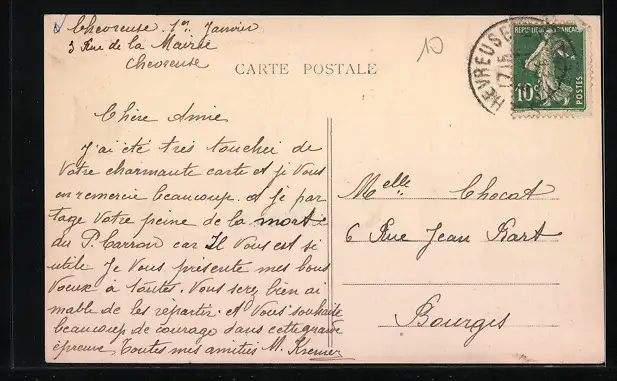 Chevreuse 1er Janvier
3 Rue de la Mairie
Chevreuse
10
CHEVREUSE
17 15
REPUBLIQUE FRANÇAISE
10c
POSTES
CARTE POSTALE
Chère Amie
J'ai été très touchée de
Votre charmante carte et je Vous
en remercie beaucoup. et je par
tage Votre peine de la mort
du P. Carron car Il Vous est si
utile Je Vous présente mes bons
Voeux à toutes. Vous serez bien ai
mable de les répartir. et Vous souhaite
beaucoup de courage dans cette grande
épreuve, Toutes mes amitiés M. Kremer
Melle Chocat
6 Rue Jean Bart
Bourges